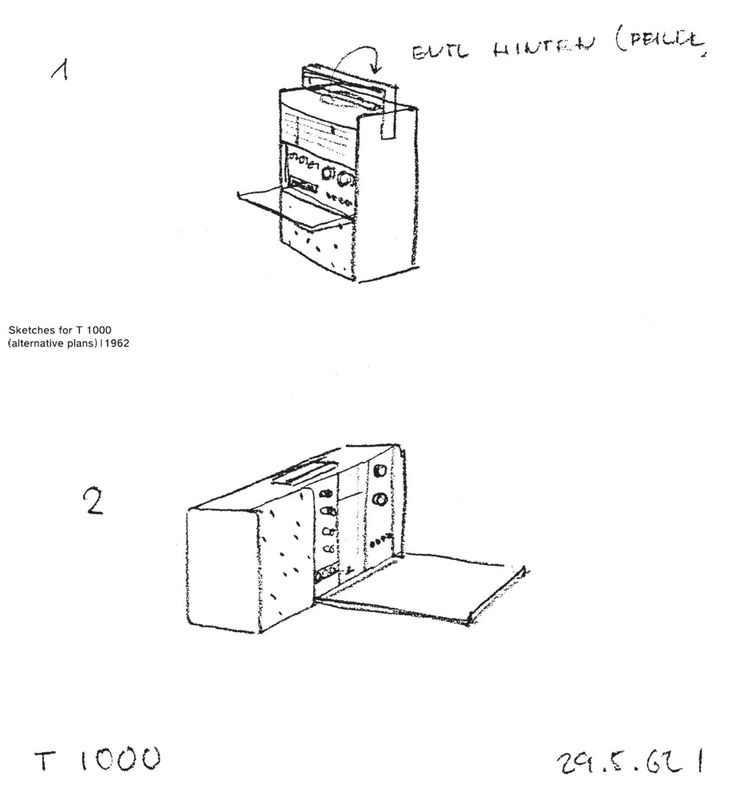 1
EVTL HINTEN (PEILER,
Sketches for T 1000
(alternative plans) | 1962
2
T 1000
29.5.62 |